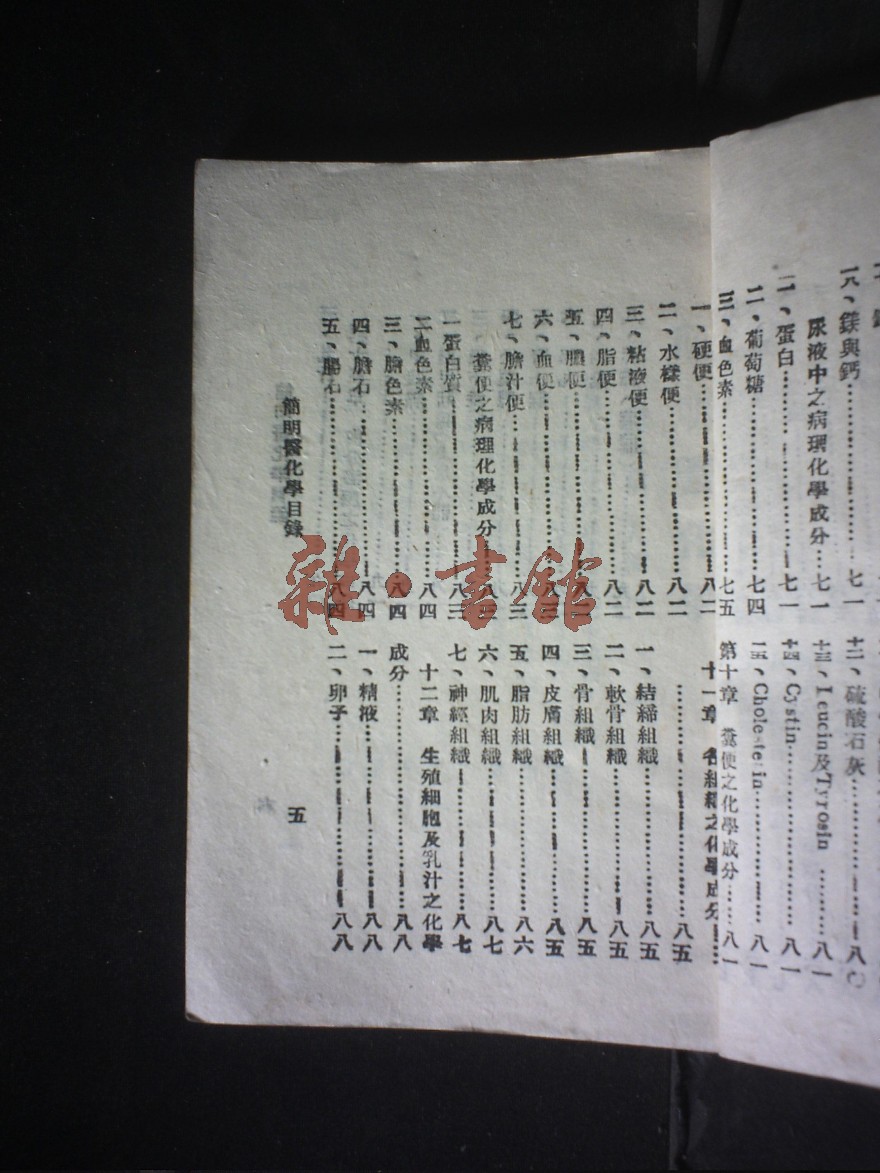 一八、鎂與鈣……七一
尿液中之病理化學成分…七一
一、蛋白……七一
二、葡萄糖……七四
三、血色素……七五
十二、硫酸石灰……八〇
十三、Leucin及Tyrosin……八一
十四、Cystin……八一
十五、Cholesterin……八一
第十章 糞便之化學成分……八一
一、硬便……八二
二、水樣便……八二
三、粘液便……八二
四、脂便……八二
五、膿便……
六、血便……八三
七、膽汁便……八三
糞便之病理化學成分……八三
一蛋白質……八三
二血色素……八四
三、膽色素……八四
四、膽石……八四
五、腸石……八四
十一章 各組織之化學成分……
……八五
一、結締組織……八五
二、軟骨組織……八五
三、骨組織……八五
四、皮膚組織……八五
五、脂肪組織……八六
六、肌肉組織……八七
七、神經組織……八七
十二章 生殖細胞及乳汁之化學
成分……八八
一、精液……八八
二、卵子……八八
簡明醫化學目錄
五
雜·書館